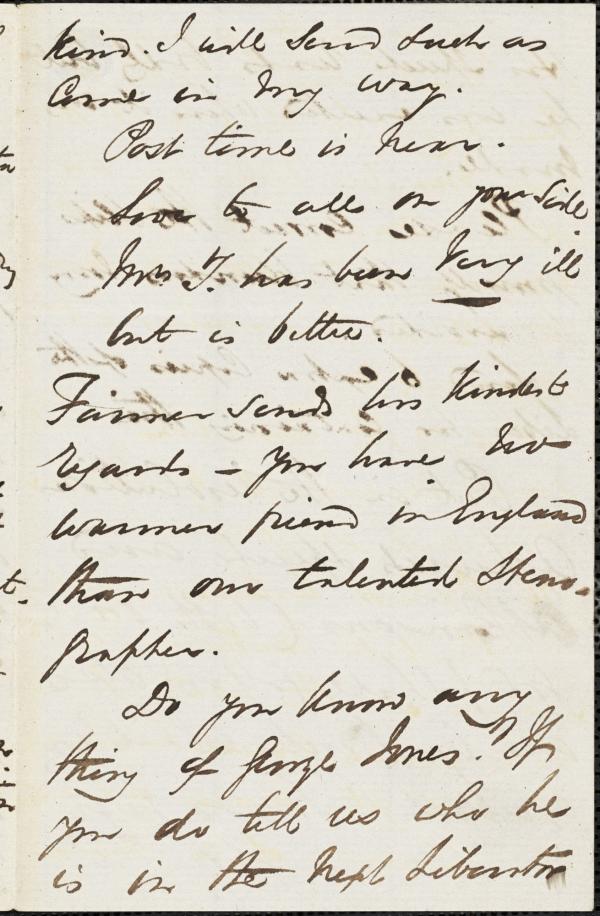 kind. I will send such as
come in my way.
Post time is near.
Love to all on your side.
Mrs T. has been very ill
but is better.
Farmer sends his kindest
regards – you have no
warmer friend in England
than our talented Steno-
grapher.
Do you know any
thing of George Jones. If
you do tell us who he
is in the next Liberator